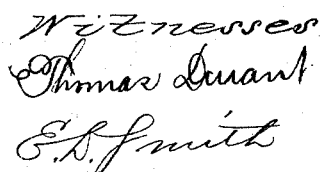 Witnesses
Thomas Durant
E. D. Smith